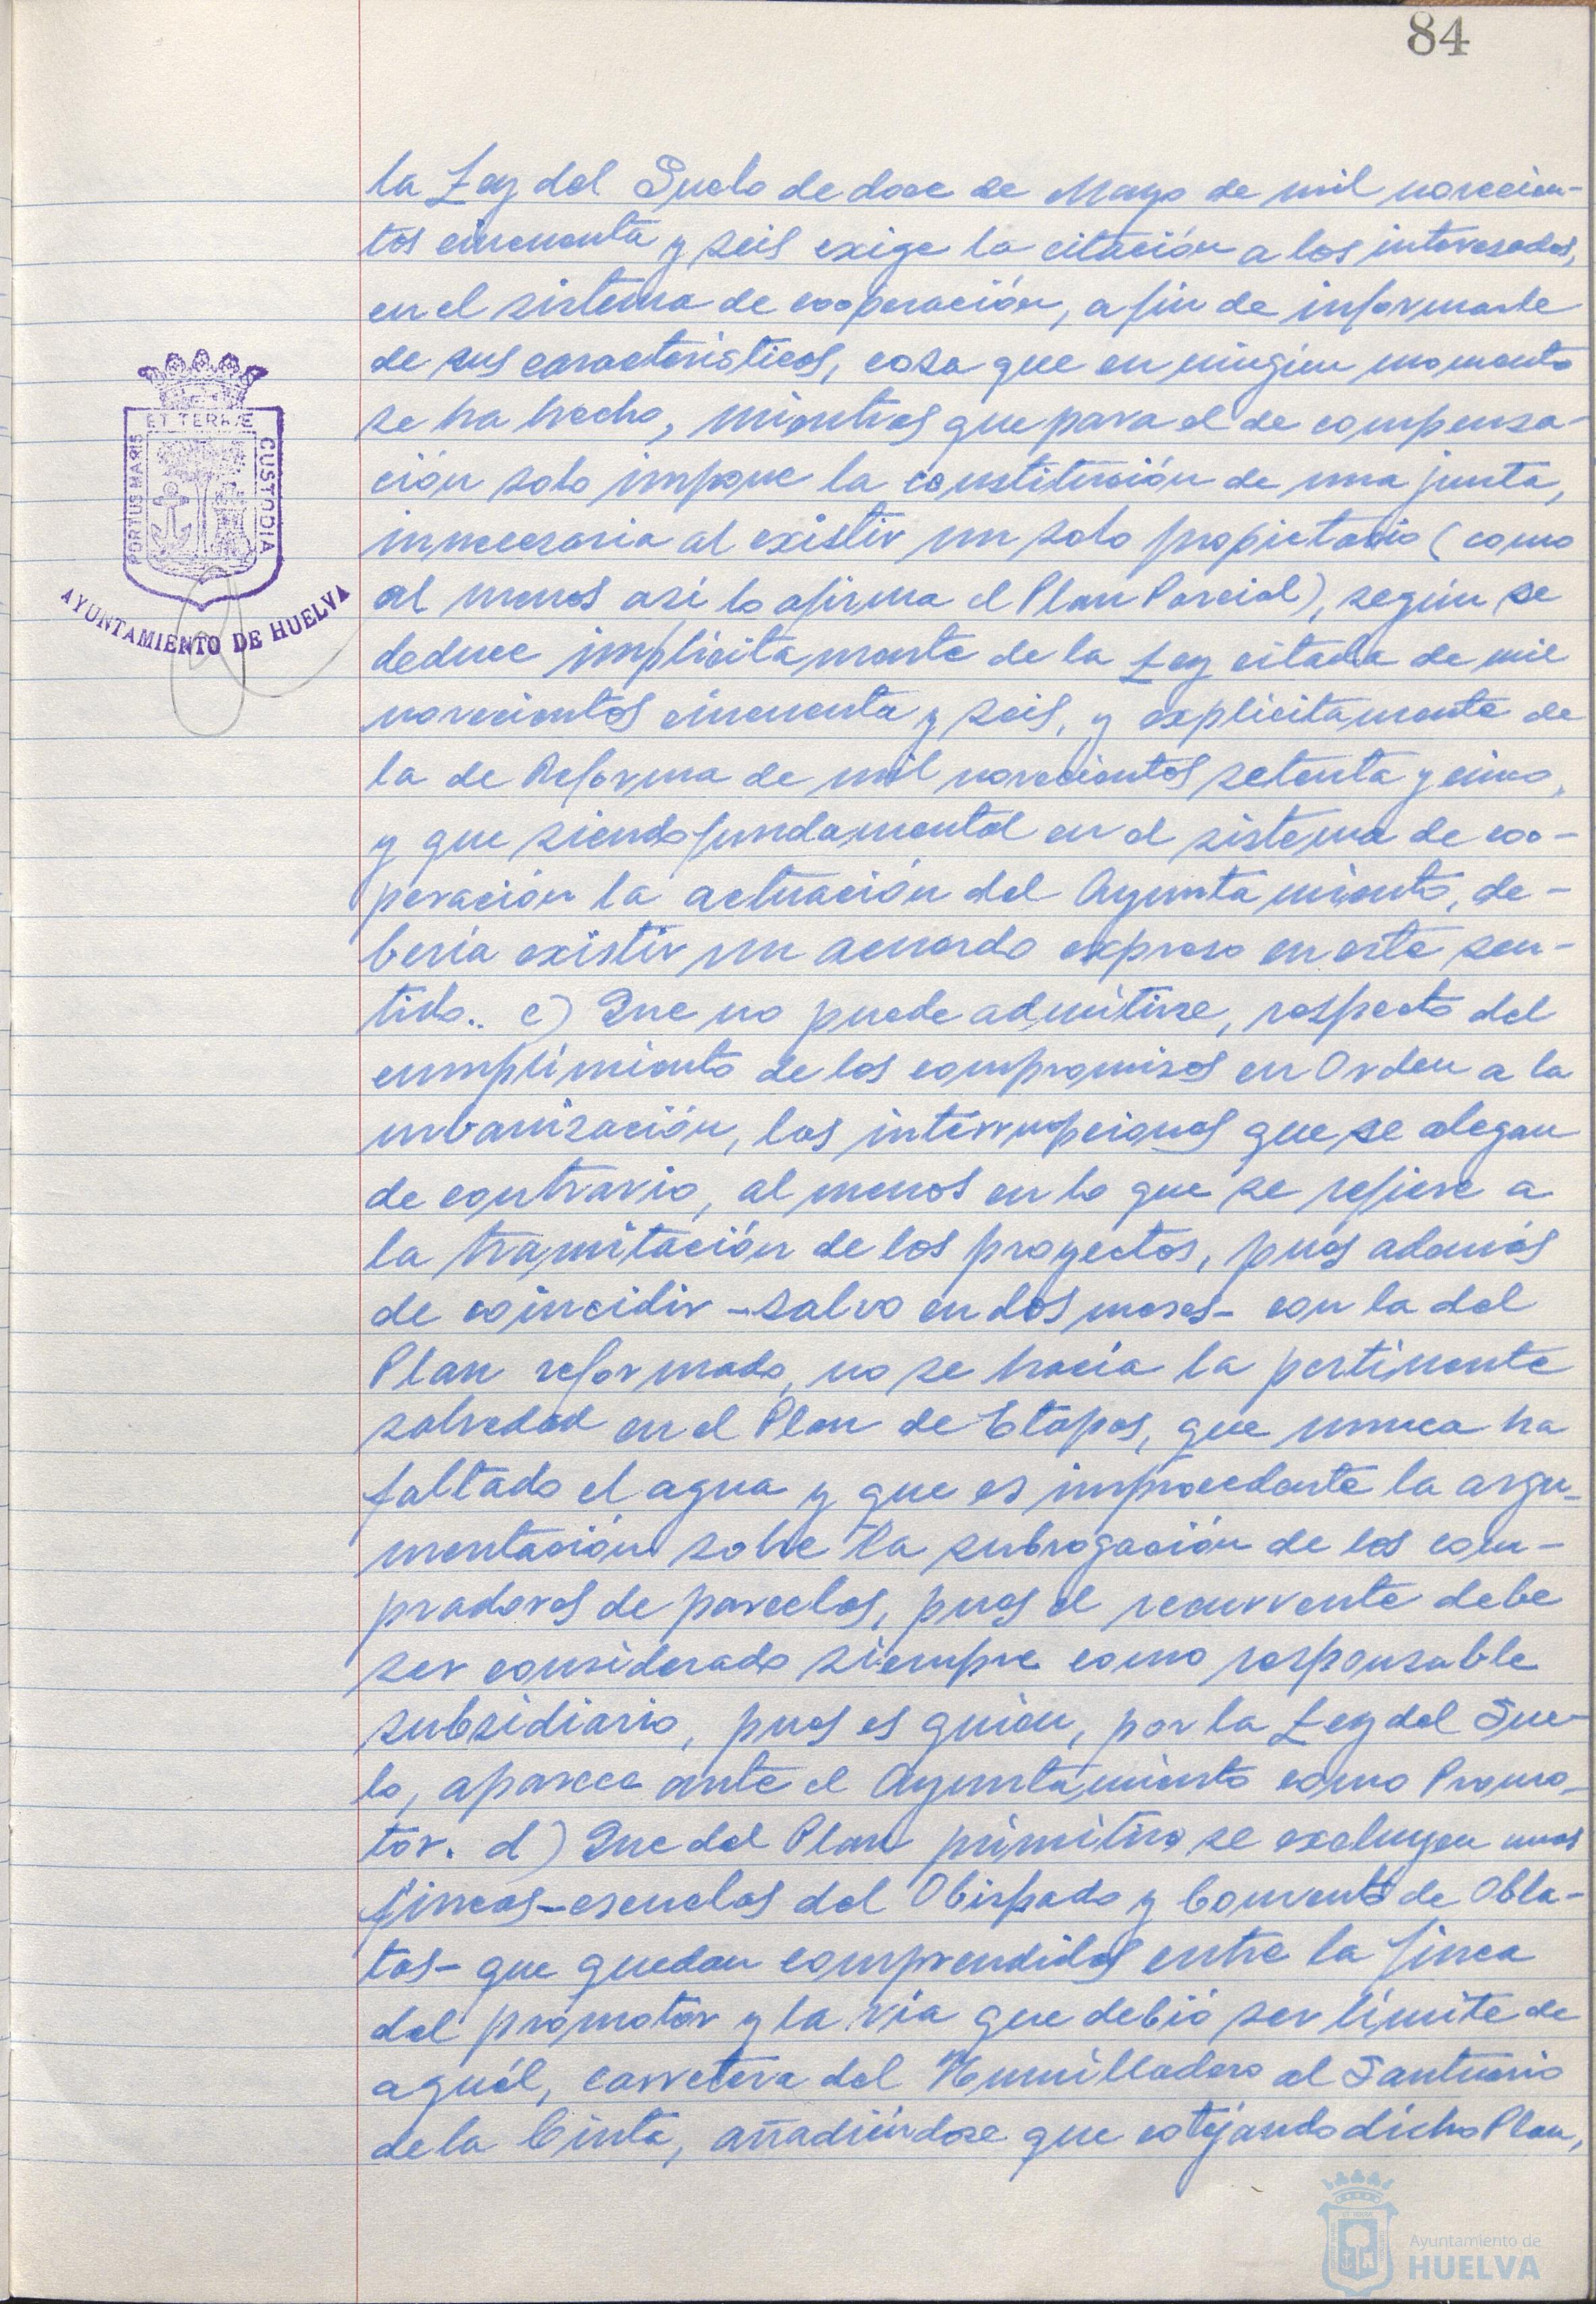 84
la Ley del Suelo de doce de Mayo de mil novecien-
tos cincuenta y seis exige la citación a los interesados,
en el sistema de cooperación, a fin de informarle
de sus caracteristicas, cosa que en ningún momento
se ha hecho, mientras que para el de compensa-
ción solo impone la constitución de una junta,
innecesaria al existir un solo propietario (como
al menos asi lo afirma el Plan Parcial), según se
deduce implicitamente de la Ley citada de mil
novecientos cincuenta y seis, y explicitamente de
la de Reforma de mil novecientos setenta y cinco,
y que siendo fundamental en el sistema de coo-
peración la actuación del Ayuntamiento, de-
bería existir un acuerdo expreso en este sen-
tido.. c) Que no puede admitirse, respecto del
cumplimiento de los compromisos en Orden a la
urbanización, las interrupciones que se alegan
de contrario, al menos en lo que se refiere a
la tramitación de los proyectos, pues además
de coincidir -salvo en dos meses- con la del
Plan reformado, no se hacía la pertinente
salvedad en el Plan de Etapas, que nunca ha
faltado el agua y que es improcedente la argu-
mentación sobre la subrogación de los com-
pradores de parcelas, pues el recurrente debe
ser considerado siempre como responsable
subsidiario, pues es quien, por la Ley del Sue-
lo, aparece ante el Ayuntamiento como Promo-
tor. d) Que del Plan primitivo se excluyen unas
fincas-escuelas del Obispado y Convento de Obla-
tas- que quedan comprendidas entre la finca
del promotor y la vía que debió ser límite de
aquél, carretera del Humilladero al Santuario
de la Cinta, añadiéndose que cotejando dicho Plan,
PORTUS MARIS
ET TERRÆ
CUSTODIA
AYUNTAMIENTO DE HUELVA
Ayuntamiento de
HUELVA